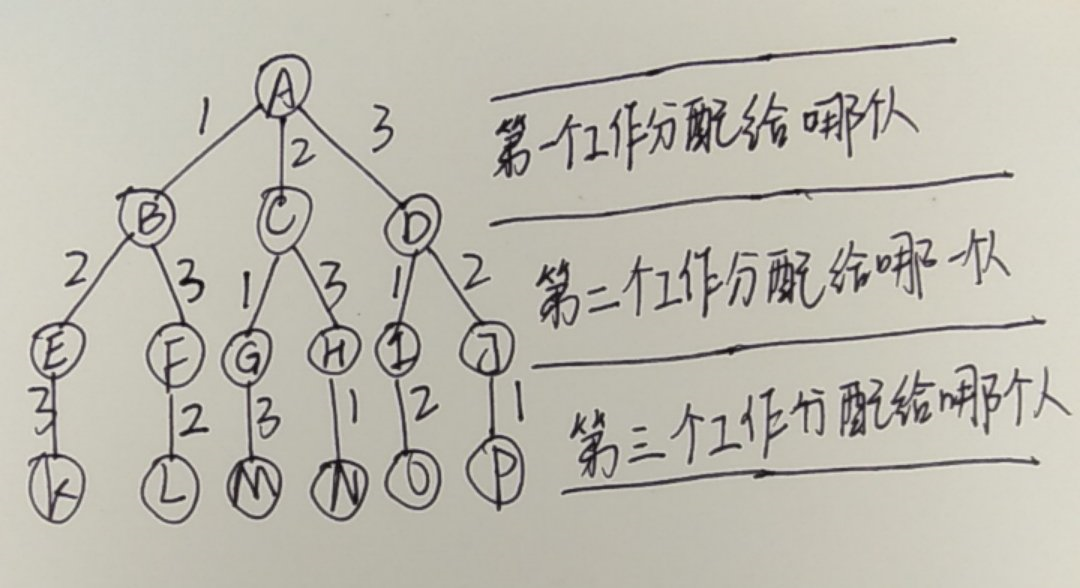 A
1 2 3
第一个工作分配给哪个人
B C D
2 3 1 3 1 2
第二个工作分配给哪一个人
E F G H I J
3 2 3 1 2 1
第三个工作分配给哪个人
K L M N O P